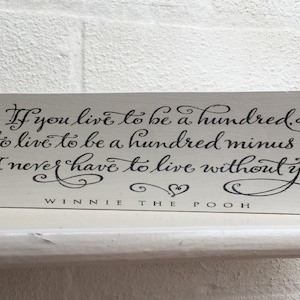 If you live to be a hundred,
to live to be a hundred minus
I never have to live without
WINNIE THE POOH